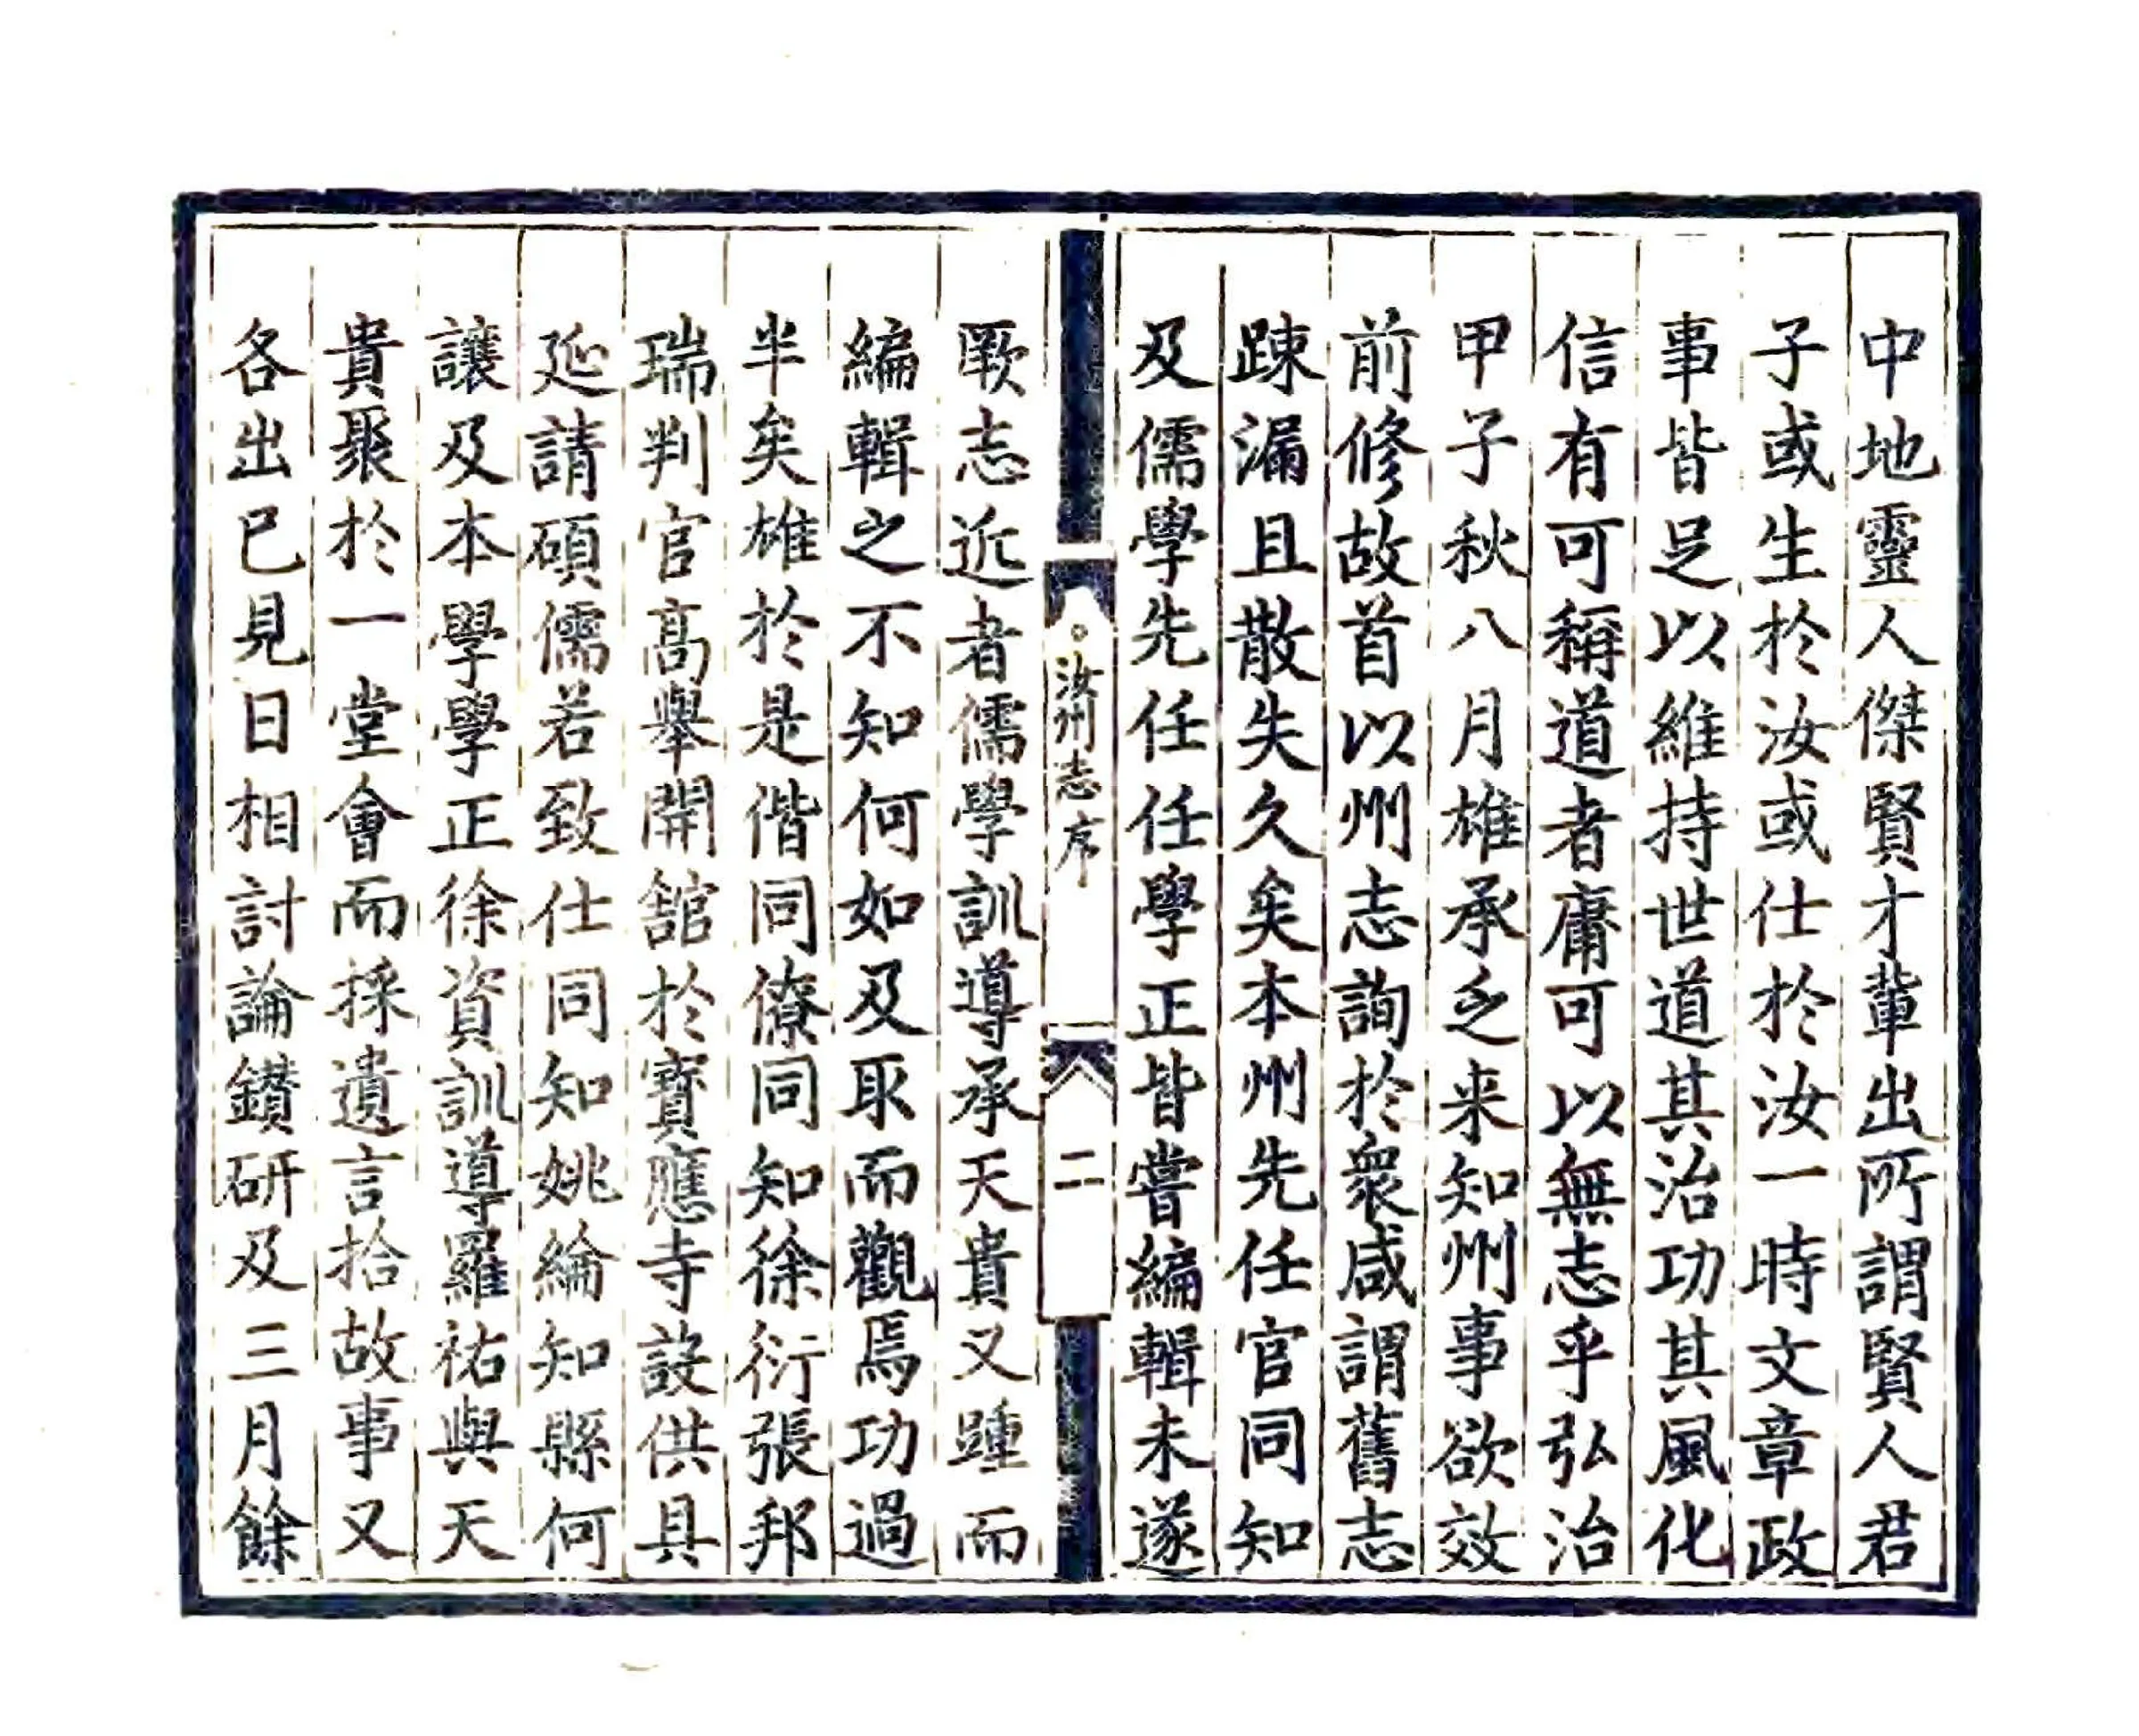 中地靈人傑賢才輩出所謂賢人君
子或生於汝或仕於汝一時文章政
事皆足以維持世道其治功其風化
信有可稱道者庸可以無志乎弘治
甲子秋八月雄承乏来知州事欲效
前修故首以州志詢於衆咸謂舊志
踈漏且散失久矣本州先任官同知
及儒學先任任學正皆嘗編輯未遂
汝州志序
二
厥志近者儒學訓導承天貴又踵而
編輯之不知何如及取而觀焉功過
半矣雄於是偕同僚同知徐衍張邦
瑞判官髙舉開舘於寳應寺設供具
延請碩儒若致仕同知姚綸知縣何
讓及本學學正徐資訓導羅祐與天
貴聚於一堂會而採遺言拾故事又
各出已見日相討論鑚研及三月餘